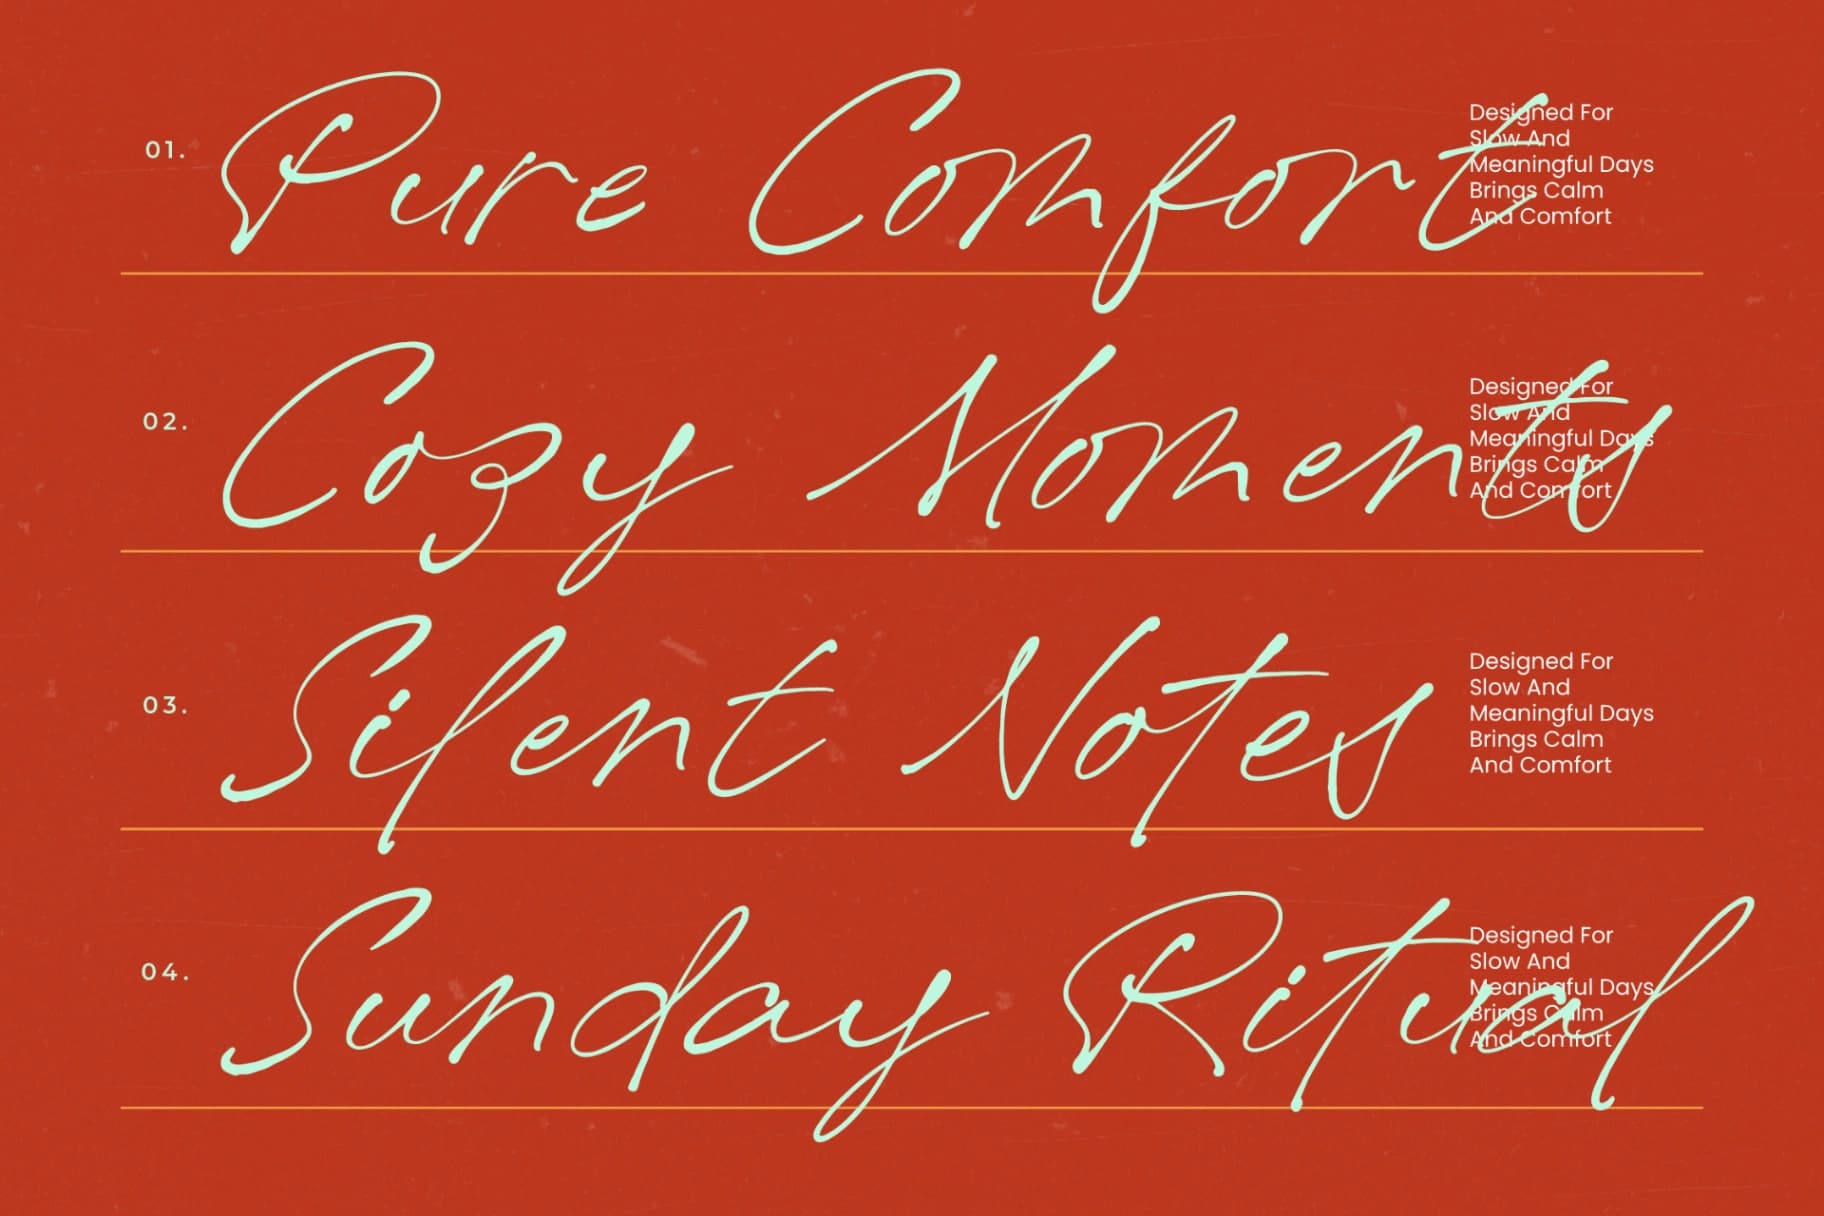 01.
Pure Comfort
Designed For
Slow And
Meaningful Days
Brings Calm
And Comfort
02.
Cozy Moments
Designed For
Slow And
Meaningful Days
Brings Calm
And Comfort
03.
Silent Notes
Designed For
Slow And
Meaningful Days
Brings Calm
And Comfort
04.
Sunday Ritual
Designed For
Slow And
Meaningful Days
Brings Calm
And Comfort